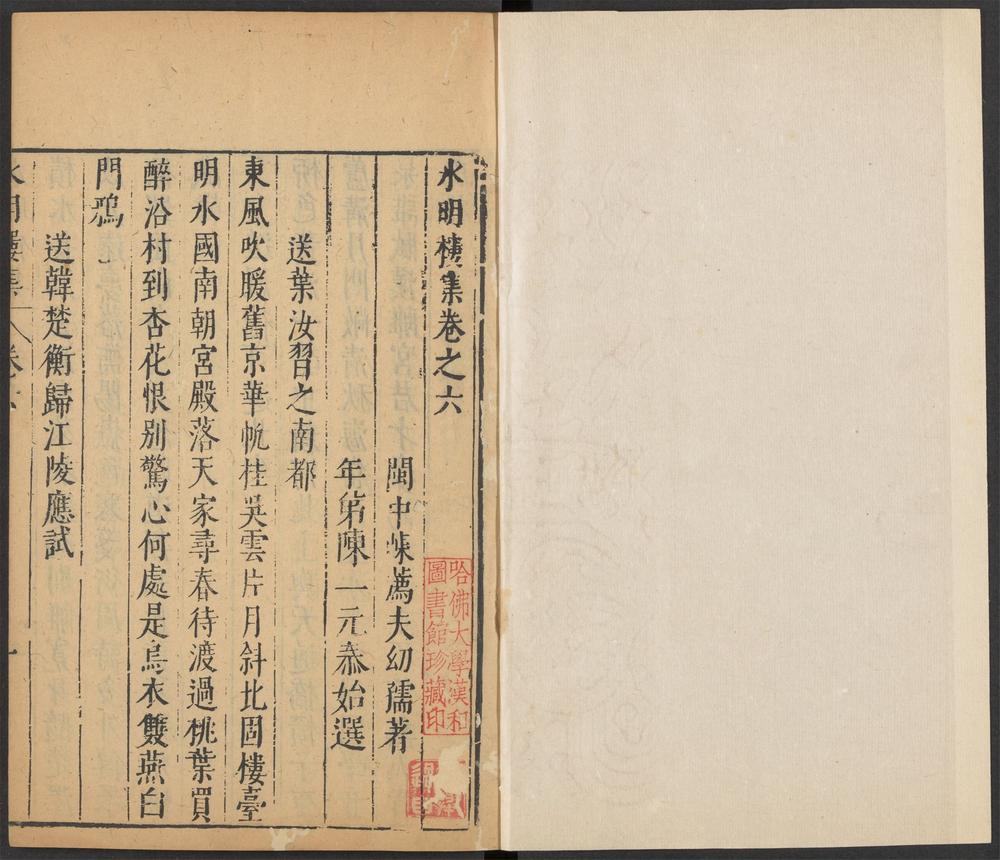 水明樓集卷之六
閩中陳薦夫幼孺著
年弟陳一元泰始選
送葉汝習之南都
東風吹暖舊京華帆挂吳雲片月斜北固樓臺
明水國南朝宮殿落天家尋春待渡過桃葉買
醉沿村到杏花恨別驚心何處是烏衣雙燕白
門鴉
送韓楚衡歸江陵應試
水明樓集 卷六 一
哈佛大學漢和
圖書館珍藏印